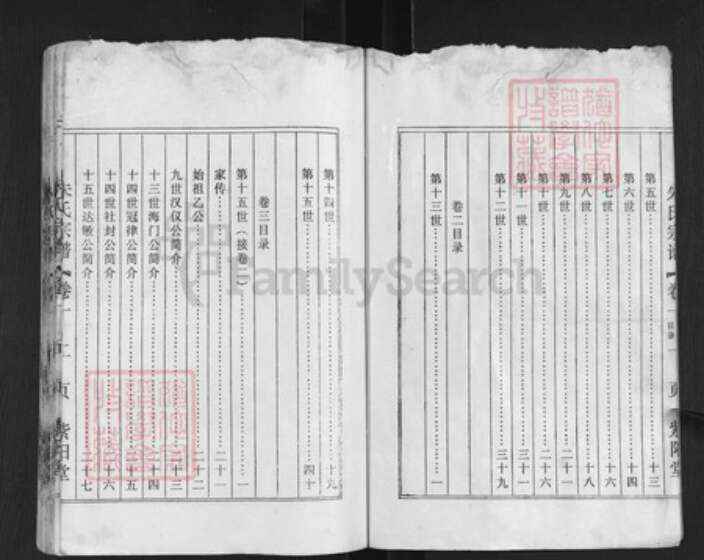 朱氏宗谱【卷一 目录 一 页 紫阳堂
第五世……十三
第六世……十四
第七世……十六
第八世……十八
第九世……二十一
第十世……二十六
第十一世……三十一
第十二世……三十九
卷二目录
第十三世……一
第十四世……十九
第十五世……四十
卷三目录
第十五世（接卷二）……一
家传……二十一
始祖乙公……二十二
九世汉仪公简介……二十三
十三世海门公简介……二十四
十四世冠律公简介……二十五
十四世社封公简介……二十六
十五世达敏公简介……二十七
朱氏宗谱【卷一 页 紫阳堂
FamilySearch